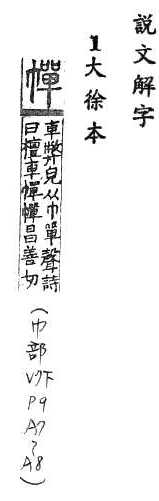 說文解字
1大徐本
幝
車弊皃从巾單聲詩
曰檀車幝幝昌善切
(巾部V7下P9A7~A8)